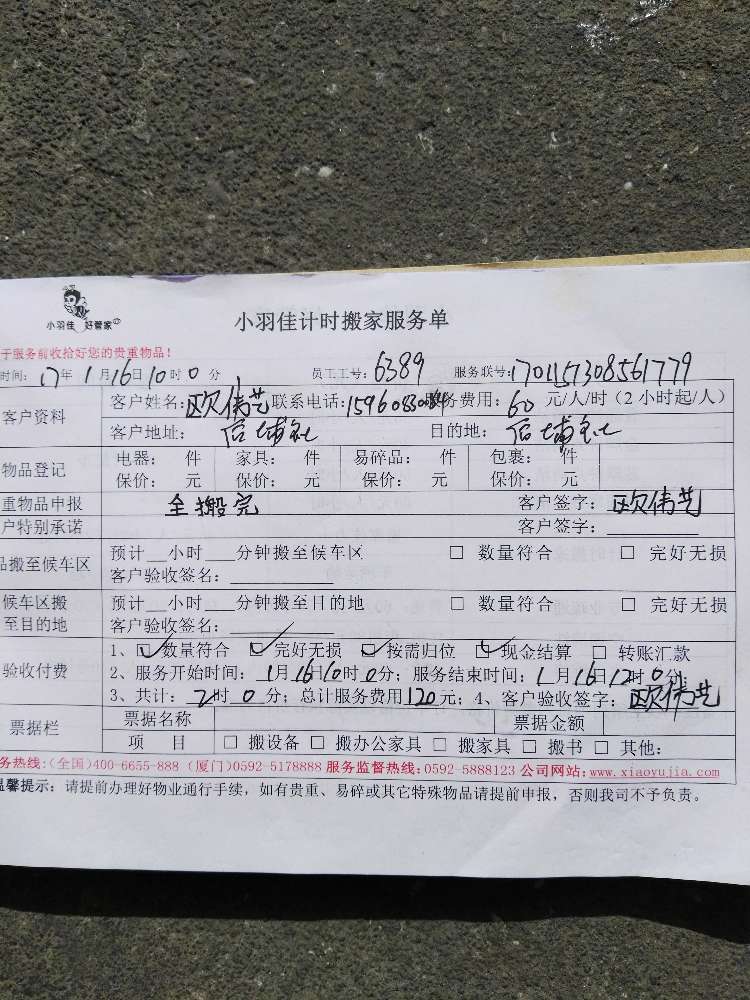 小羽佳 好管家
小羽佳计时搬家服务单
于服务前收拾好您的贵重物品!
时间: 17年 1月16日10时0分 员工工号: 6389 服务联号: 1701151308561779
客户资料 客户姓名: 欧伟艺 联系电话: 务费用: 60 元/人/时(2小时起/人)
客户地址: 后埔社 目的地: 后埔社
物品登记 电器: 件 家具: 件 易碎品: 件 包裹: 件
保价: 元 保价: 元 保价: 元 保价: 元
重物品申报 全搬完 客户签字: 欧伟艺
户特别承诺 客户签字:
品搬至候车区 预计__小时___分钟搬至候车区 □ 数量符合 □ 完好无损
客户验收签名:
候车区搬 预计__小时___分钟搬至目的地 □ 数量符合 □ 完好无损
至目的地 客户验收签名:
1、☑数量符合 ☑完好无损 ☑按需归位 ☑现金结算 □ 转账汇款
验收付费 2、服务开始时间: 1月16日10时0分; 服务结束时间: 1月16日12时0分;
3、共计: 2时 0分; 总计服务费用120元; 4、客户验收签字: 欧伟艺
票据栏 票据名称 票据金额
项 目 □ 搬设备 □ 搬办公家具 □ 搬家具 □ 搬书 □ 其他:
务热线:(全国)400-6655-888 (厦门)0592-5178888 服务监督热线:0592-5888123 公司网站:www.xiaoyujia.com
温馨提示: 请提前办理好物业通行手续,如有贵重、易碎或其它特殊物品请提前申报,否则我司不予负责。